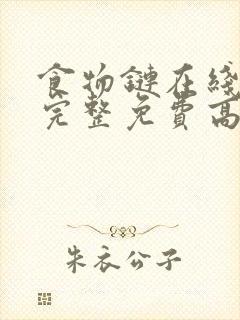 食物鏈在綫
完整免費高
朱衣公子